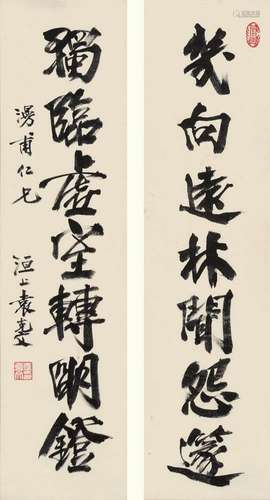 幾向遠林聞怨篴
獨臨虛室轉明鐙
漫甫仁兄
洹上袁克文